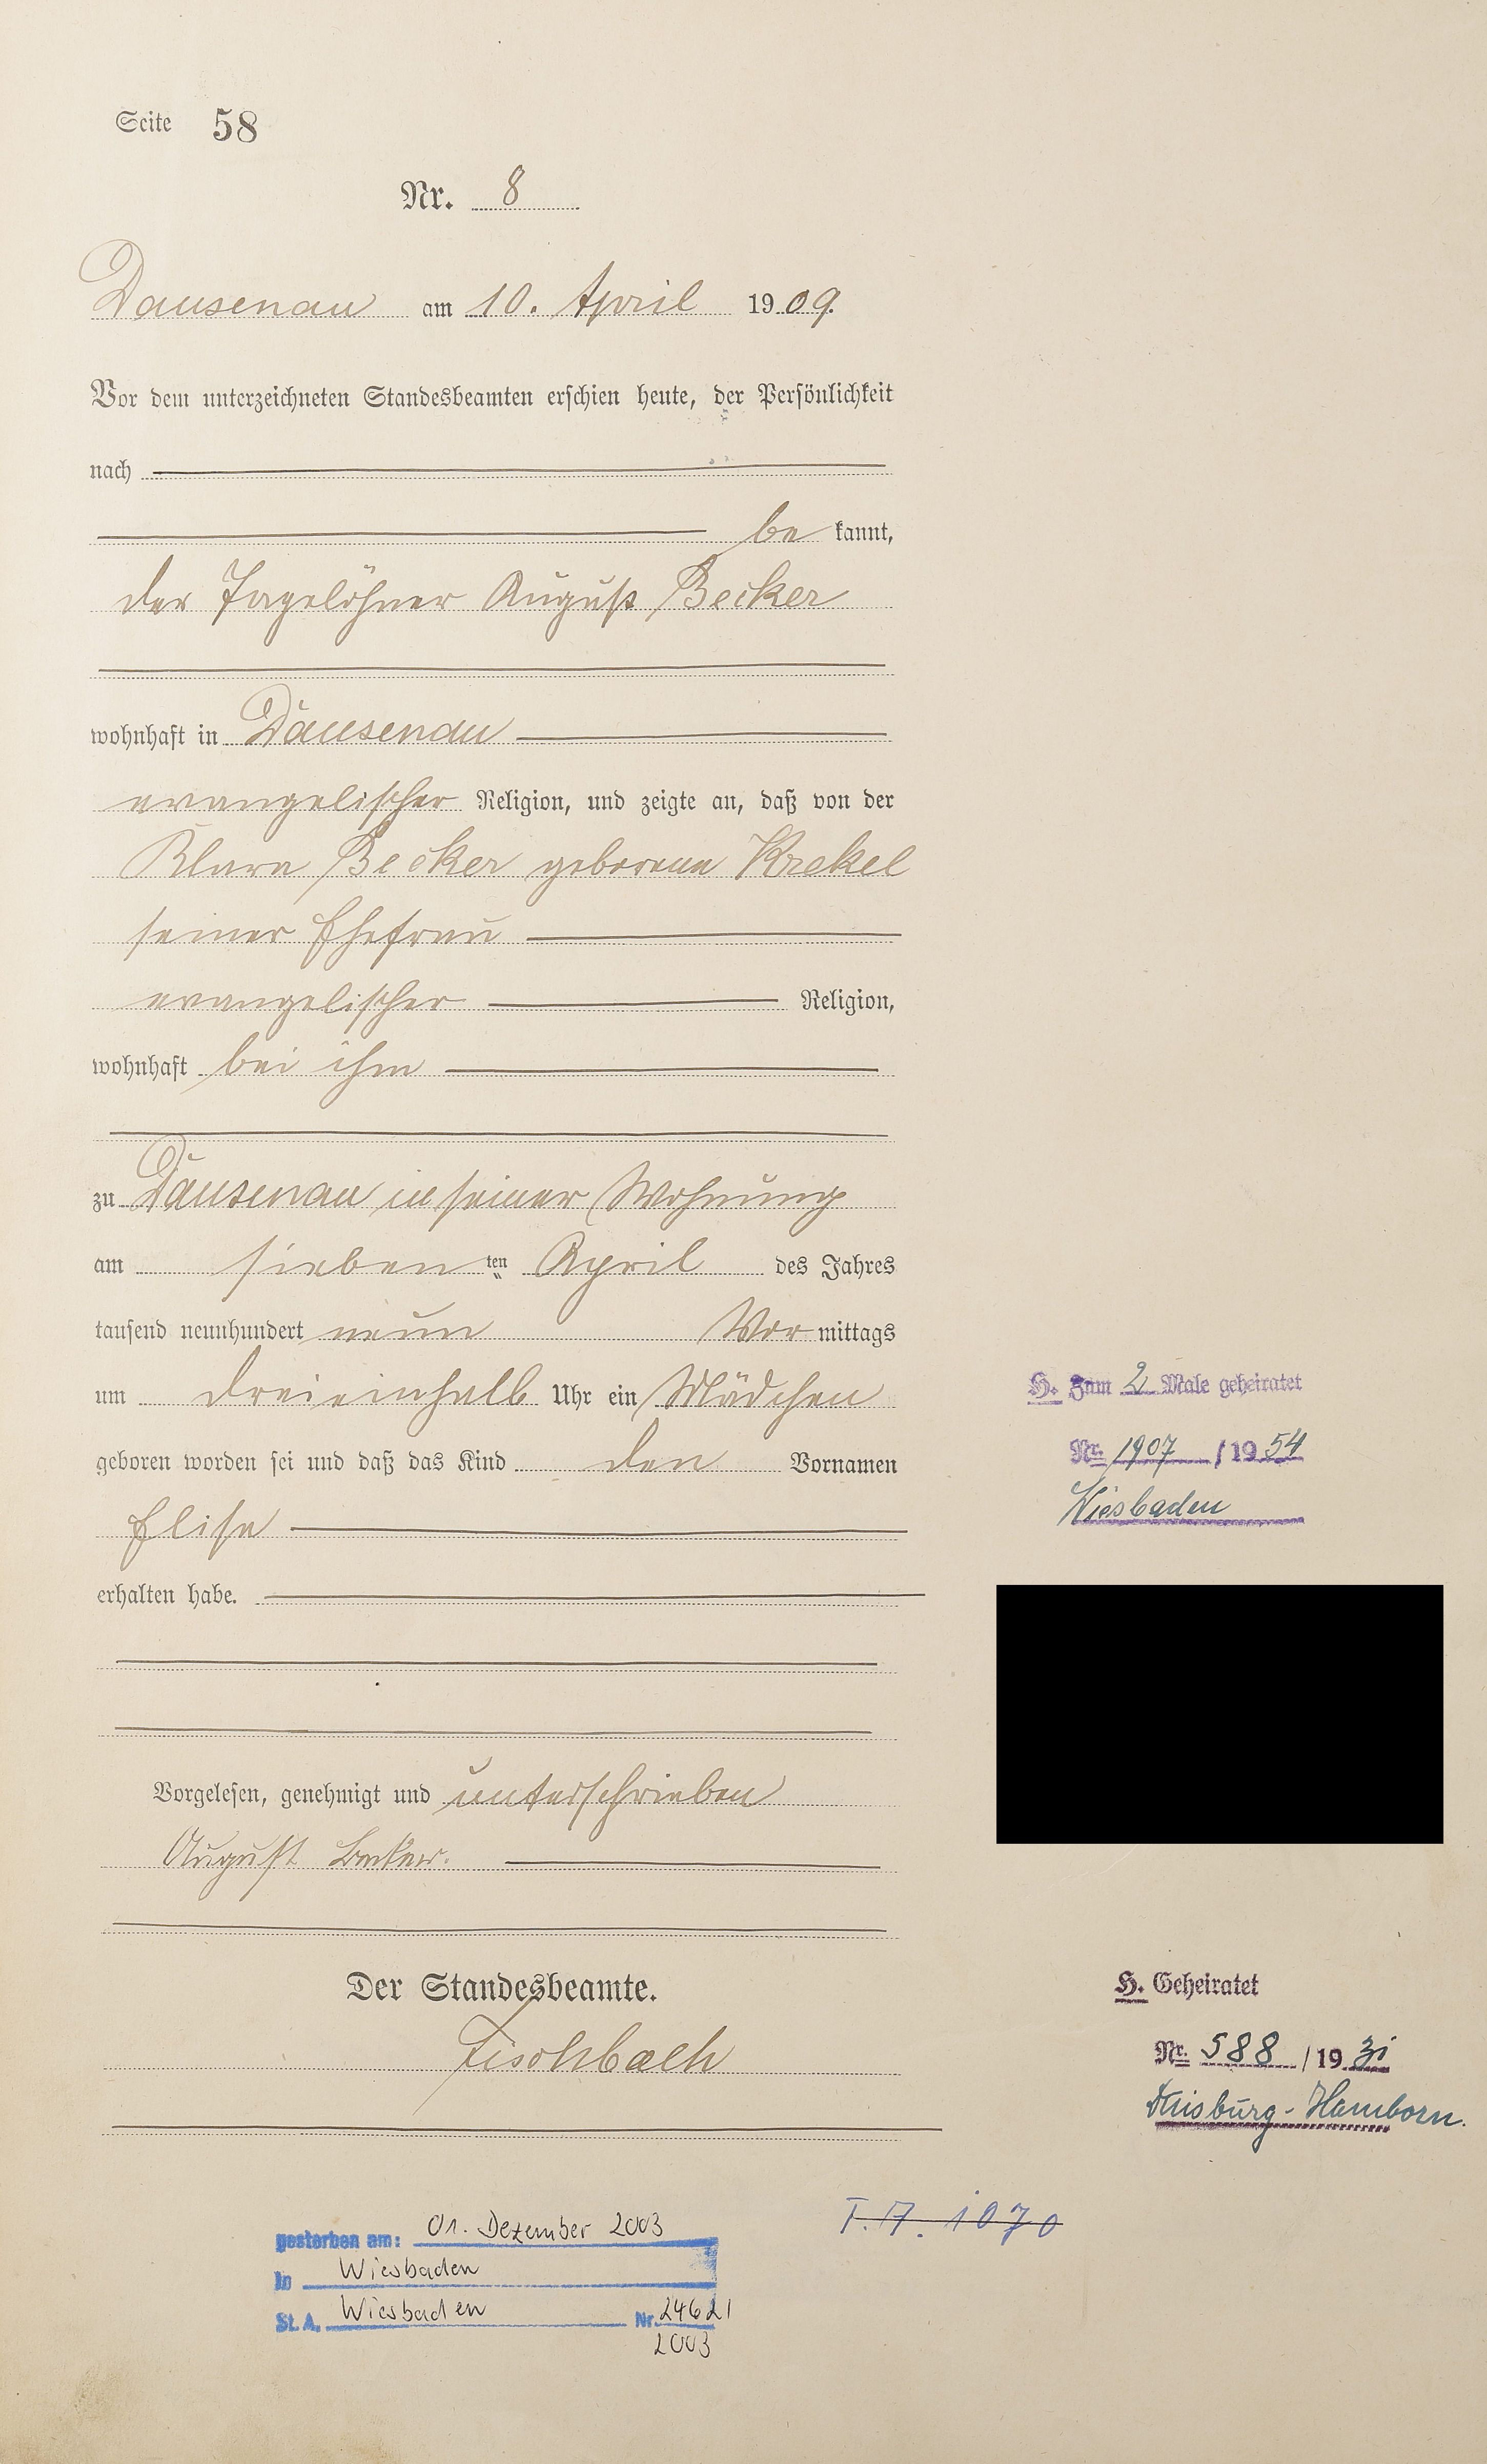 Seite 58
Nr. 8
Dausenau am 10. April 1909.
Vor dem unterzeichneten Standesbeamten erschien heute, der Persönlichkeit
nach
be kannt,
der Tagelöhner August Becker
wohnhaft in Dausenau
evangelischer Religion, und zeigte an, daß von der
Klara Becker geborene Krekel
seiner Ehefrau
evangelischer Religion,
wohnhaft bei ihm
zu Dausenau in seiner Wohnung
am sieben ten April des Jahres
tausend neunhundert neun Vor mittags
um dreieinhalb Uhr ein Mädchen
geboren worden sei und daß das Kind den Vornamen
Elise
erhalten habe.
Vorgelesen, genehmigt und unterschrieben
August Becker.
Der Standesbeamte.
Fischbach
H. Zum 2 Male geheiratet
Nr. 1907 / 1954
Wiesbaden
H. Geheiratet
Nr. 588 / 1931
Duisburg-Hamborn.
T. A. 1070
gestorben am: 01. Dezember 2003
in Wiesbaden
St. A. Wiesbaden Nr. 24621
2003